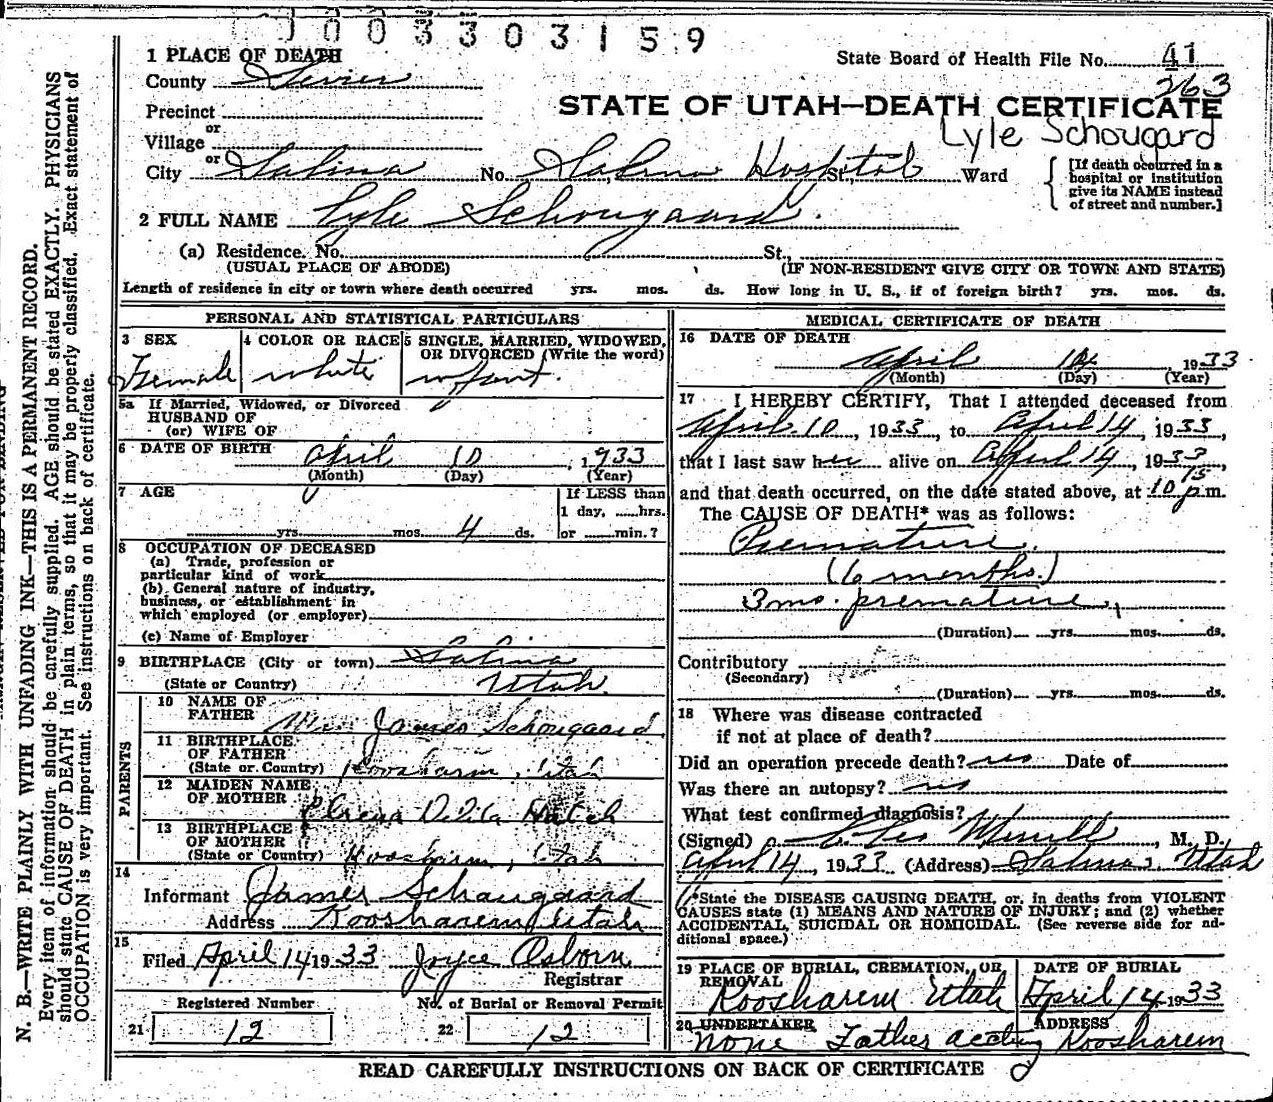 0003303159
State Board of Health File No. 41
263
1 PLACE OF DEATH
County Sevier
STATE OF UTAH—DEATH CERTIFICATE
Lyle Schougard
Precinct
or
Village
or
City Salina No. Salina Hospital St., Ward
[If death occurred in a hospital or institution give its NAME instead of street and number.]
2 FULL NAME Lyle Schougaard.
(a) Residence. No. St.,
(USUAL PLACE OF ABODE) (IF NON-RESIDENT GIVE CITY OR TOWN AND STATE)
Length of residence in city or town where death occurred yrs. mos. ds. How long in U. S., if of foreign birth? yrs. mos. ds.
PERSONAL AND STATISTICAL PARTICULARS
3 SEX Female
4 COLOR OR RACE white
5 SINGLE, MARRIED, WIDOWED, OR DIVORCED (Write the word) infant.
5a If Married, Widowed, or Divorced
HUSBAND OF
(or) WIFE OF
6 DATE OF BIRTH April 10, 1933
(Month) (Day) (Year)
7 AGE yrs. mos. 4 ds.
If LESS than
1 day, hrs.
or min.?
8 OCCUPATION OF DECEASED
(a) Trade, profession or
particular kind of work
(b) General nature of industry,
business, or establishment in
which employed (or employer)
(c) Name of Employer
9 BIRTHPLACE (City or town) Salina
(State or Country) Utah.
PARENTS
10 NAME OF
FATHER James Schougaard
11 BIRTHPLACE
OF FATHER
(State or Country) Koosharem, Utah
12 MAIDEN NAME
OF MOTHER Hatch
13 BIRTHPLACE
OF MOTHER
(State or Country) Koosharem, Utah
14
Informant James Schougaard
Address Koosharem Utah
15
Filed April 14 1933 Joyce Osborn
Registrar
Registered Number No. of Burial or Removal Permit
21 12 22 12
MEDICAL CERTIFICATE OF DEATH
16 DATE OF DEATH
April 1933
(Month) (Day) (Year)
17 I HEREBY CERTIFY, That I attended deceased from
April 10, 1933, to April 14, 1933,
that I last saw her alive on April 14, 1933,
and that death occurred, on the date stated above, at 10 15 p.m.
The CAUSE OF DEATH* was as follows:
Premature.
(6 months.)
3 mo. premature,
(Duration) yrs. mos. ds.
Contributory
(Secondary)
(Duration) yrs. mos. ds.
18 Where was disease contracted
if not at place of death?
Did an operation precede death? no Date of
Was there an autopsy? no
What test confirmed diagnosis?
(Signed) Merrill, M. D.
April 14, 1933 (Address) Salina, Utah
*State the DISEASE CAUSING DEATH, or, in deaths from VIOLENT
CAUSES state (1) MEANS AND NATURE OF INJURY; and (2) whether
ACCIDENTAL, SUICIDAL OR HOMICIDAL. (See reverse side for ad-
ditional space.)
19 PLACE OF BURIAL, CREMATION, OR
REMOVAL
Koosharem Utah
DATE OF BURIAL
April 14 1933
20 UNDERTAKER
none Father acting
ADDRESS
Koosharem
READ CAREFULLY INSTRUCTIONS ON BACK OF CERTIFICATE
N. B.—WRITE PLAINLY WITH UNFADING INK—THIS IS A PERMANENT RECORD.
Every item of information should be carefully supplied. AGE should be stated EXACTLY. PHYSICIANS
should state CAUSE OF DEATH in plain terms, so that it may be properly classified. Exact statement of
OCCUPATION is very important. See instructions on back of certificate.